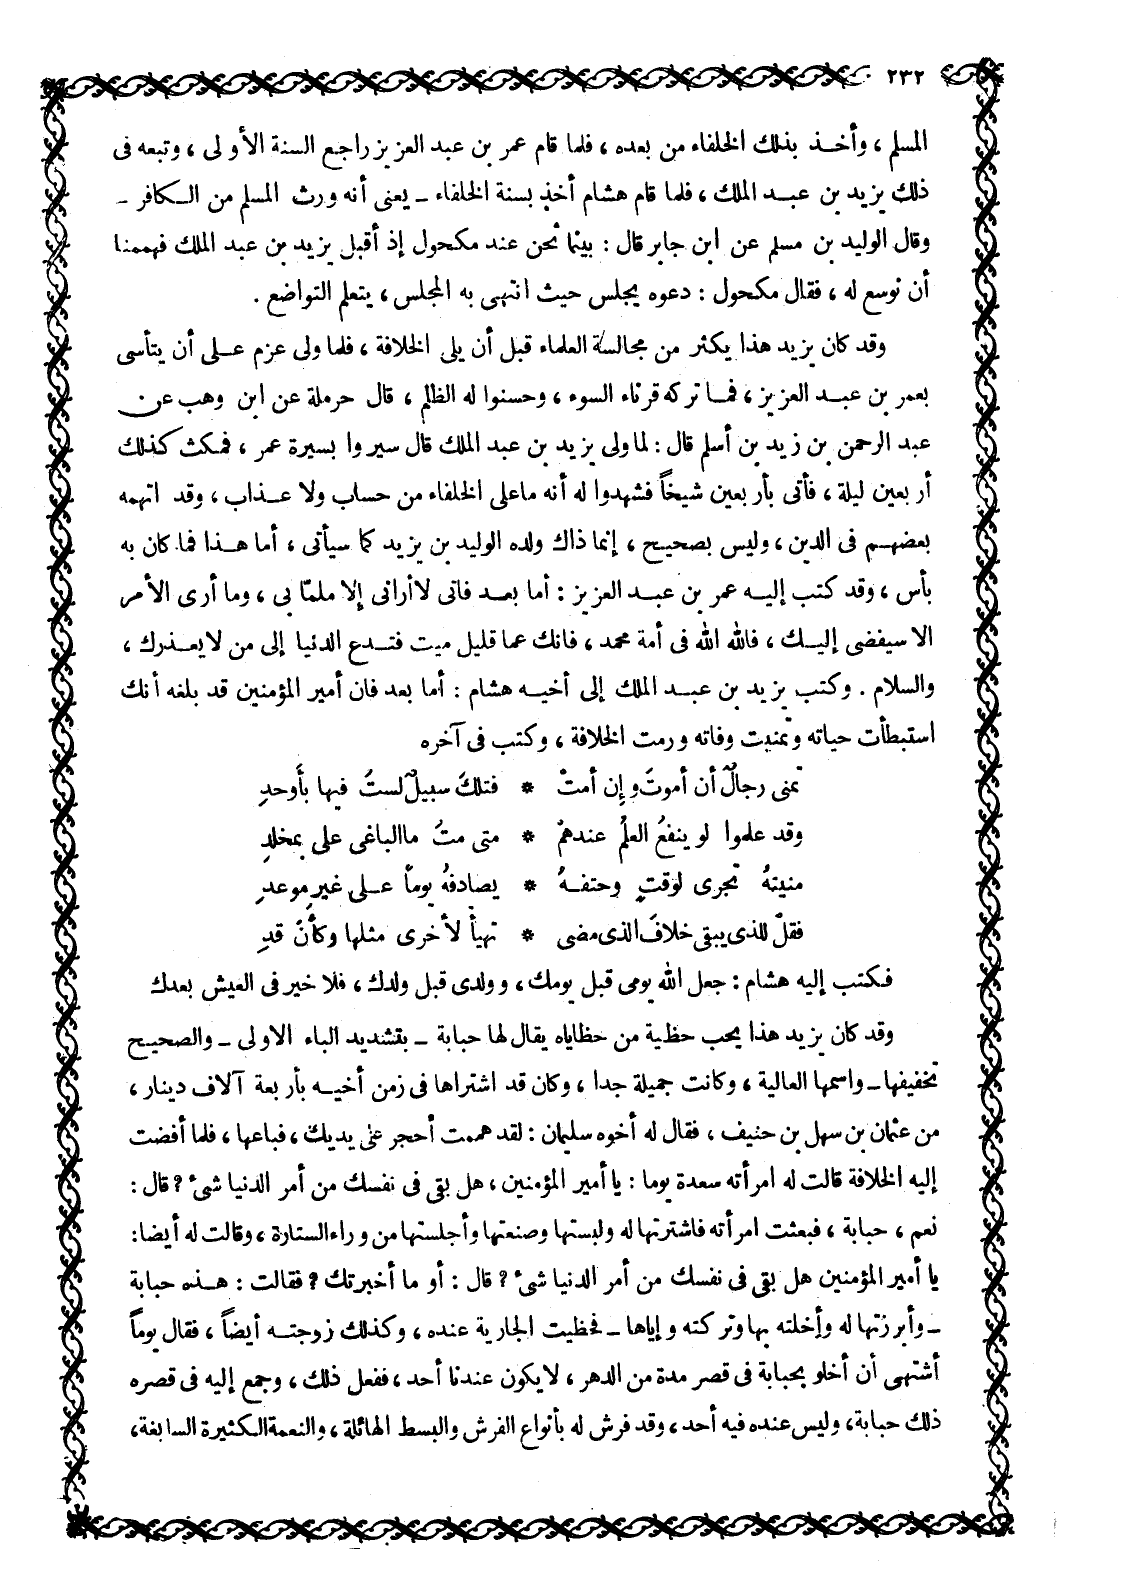 ٢٣٢
المسلم ، وأخـذ بذلك الخلفاء من بعده ، فلما قام عمر بن عبد العزيز راجع السنة الأولى ، وتبعه فى
ذلك يزيد بن عبـد الملك ، فلما قام هشام أخذ بسنة الخلفاء ـ يعنى أنه ورث المسلم من الـكافر ـ
وقال الوليد بن مسلم عن ابن جابر قال : بينما نحن عند مكحول إذ أقبل يزيد بن عبد الملك فهممنا
أن نوسع له ، فقال مكحول : دعوه يجلس حيث انتهى به المجلس ، يتعلم التواضع .
وقد كان يزيد هذا يكثر من مجالسة العلماء قبل أن يلى الخلافة ، فلما ولى عزم عـلى أن يتأسى
بعمر بن عبـد العزيز ، فمـا تركه قرناء السوء ، وحسنوا له الظلم ، قال حرملة عن ابن وهب عن
عبد الرحمن بن زيد بن أسلم قال : لما ولى يزيد بن عبد الملك قال سيروا بسيرة عمر ، فمكث كذلك
أربعين ليلة ، فأتى بأربعين شيخاً فشهدوا له أنه ماعلى الخلفاء من حساب ولا عـذاب ، وقد اتهمه
بعضهـم فى الدين ، وليس بصحيح ، إنما ذاك ولده الوليد بن يزيد كما سيأتى ، أما هـذا فما كان به
بأس ، وقد كتب إليـه عمر بن عبـد العزيز : أما بعـد فانى لاأرانى إلا ملمّا بى ، وما أرى الأمر
الا سيفضى إليـك ، فالله الله فى أمة محمد ، فانك عما قليل ميت فتـدع الدنيا إلى من لايعـذرك ،
والسلام . وكتب يزيد بن عبـد الملك إلى أخيـه هشام : أما بعد فان أمير المؤمنين قد بلغه أنك
استبطأت حياته وتمنيت وفاته ورمت الخلافة ، وكتب فى آخره
تمنى رجالٌ أن أموتَ وإن أمتْ * فتلكَ سبيلٌ لستُ فيها بأَوحدِ
وقد علموا لو ينفعُ العلمُ عندهمْ * متى متُ ماالباغى على بمخلدِ
منيتهُ تجرى لوقتٍ وحتفـهُ * يصادفهُ يوماً عـلى غيرِ موعدِ
فقلْ للذى يبقى خلافَ الذى مضى * تهيأْ لأخرى مثلها وكأنْ قدِ
فـكتب إليه هشام : جعل الله يومى قبل يومك ، وولدى قبل ولدك ، فلا خير فى العيش بعدك
وقد كان يزيد هذا يحب حظية من حظاياه يقال لها حبابة ـ بتشديد الباء الاولى ـ والصحيـح
تخفيفها ـ واسمها العالية ، وكانت جميلة جدا ، وكان قد اشتراها فى زمن أخيـه بأربعة آلاف دينار ،
من عثمان بن سهل بن حنيف ، فقال له أخوه سليمان : لقد هممت أحجر على يديك ، فباعها ، فلما أفضت
إليه الخلافة قالت له امرأته سعدة يوما : يا أمير المؤمنين ، هل بقى فى نفسك من أمر الدنيا شئ ؟ قال :
نعم ، حبابة ، فبعثت امرأته فاشترتها له ولبستها وصنعتها وأجلستها من وراء الستارة ، وقالت له أيضا :
يا أمير المؤمنين هل بقى فى نفسك من أمر الدنيا شئ ؟ قال : أو ما أخبرتك ؟ فقالت : هـذه حبابة
ـ وأبرزتها له وأخلته بها وتركته وإياها ـ فحظيت الجارية عنده ، وكذلك زوجتـه أيضاً ، فقال يوماً
أشتهى أن أخلو بحبابة فى قصر مدة من الدهر ، لا يكون عندنا أحد ، ففعل ذلك ، وجمع إليه فى قصره
ذلك حبابة ، وليس عنده فيه أحد ، وقد فرش له بأنواع الفرش والبسط الهائلة ، والنعمة الـكثيرة السابغة ،